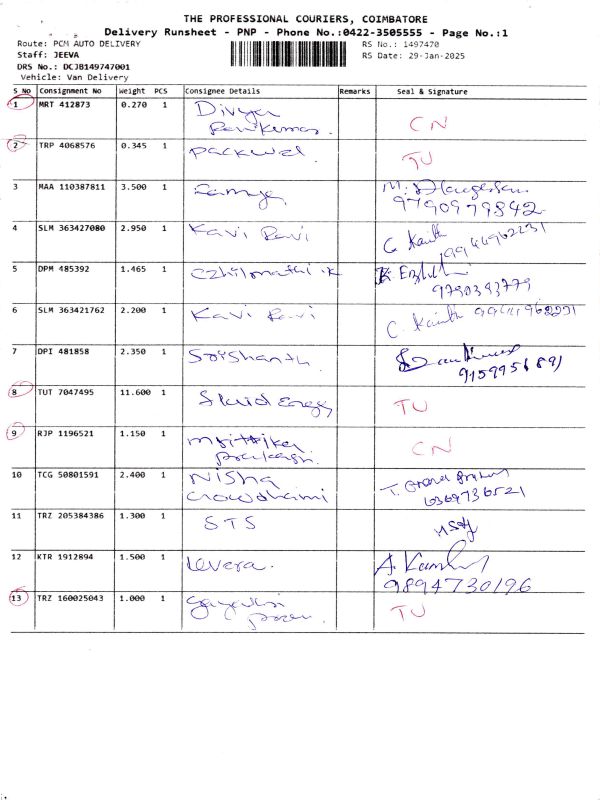 THE PROFESSIONAL COURIERS, COIMBATORE
Delivery Runsheet - PNP - Phone No.:0422-3505555 - Page No.:1
Route: PCM AUTO DELIVERY RS No.: 1497470
Staff: JEEVA RS Date: 29-Jan-2025
DRS No.: DCJB149747001
Vehicle: Van Delivery
S No Consignment No Weight PCS Consignee Details Remarks Seal & Signature
1 MRT 412873 0.270 1 Divya
Ravikumar. CN
2 TRP 4068576 0.345 1 packwel. TU
3 MAA 110387811 3.500 1 Ramya. M.
9790979842
4 SLM 363427080 2.950 1 Kavi Ravi C. Kanith
9944962231
5 DPM 485392 1.465 1 Ezhilmathi K K
9790393779
6 SLM 363421762 2.200 1 Kavi Ravi C. Kanith 9944962231
7 DPI 481858 2.350 1 Srishanth.
9159956891
8 TUT 7047495 11.600 1 Energy TU
9 RJP 1196521 1.150 1 CN
10 TCG 50801591 2.400 1 Nisha T.
Chowdhami 6369736521
11 TRZ 205384386 1.300 1 STS
12 KTR 1912894 1.500 1 Levera. A.
9894730196
13 TRZ 160025043 1.000 1 Gayathri TU